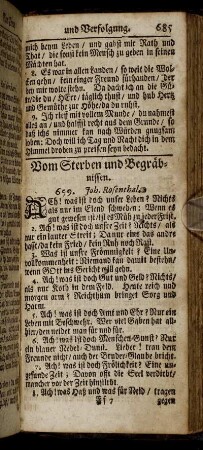 und Verfolgung. 685
mich beym Leben / und gabst mir Rath und
That / die sonst kein Mensch zu geben in seinen
Mächten hat.
8. Es war in allen Landen / so weit die Wol-
cken gehn / kein einger Freund fürhanden / Der
bey mir wolte stehn. Da dacht ich an die Gü-
te / die du / HErr / täglich thust / und hub Hertz
und Gemüthe zur Höhe / da du ruhst.
9. Ich rieff mit vollem Munde / du nahmest
alles an / und halfst recht aus dem Grunde / so
daß ichs nimmer kan nach Würden gnugsam
loben: Doch will ich Tag und Nacht dich in dem
Himmel droben zu preisen seyn bedacht.
Vom Sterben und Begräb-
nissen.
659. Joh. Rosenthal.
ACh! was ist doch unser Leben? Nichts
als nur im Elend schweben: Wenn es
gut gewesen ist / ist es Müh zu jeder Frist.
2. Ach! was ist doch unser Zeit? Nichts / als
nur ein lauter Streit; Da nur eines das andre
haßt / da kein Fried / kein Ruh noch Rast.
3. Was ist unsre Frömmigkeit? Eine Un-
vollkommenheit: Niemand kan damit bestehn /
wenn GOtt ins Gericht will gehn.
4. Ach! was ist doch Gut und Geld? Nichts /
als nur Koth in dem Feld. Heute reich und
morgen arm? Reichthum bringet Sorg und
Harm.
5. Ach! was ist doch Amt und Ehr? Nur ein
Leben mit Beschwehr. Wer viel Gaben hat all-
hier / den neidet man für und für.
6. Ach! was ist doch Menschen-Gunst? Nur
ein blauer Nebel-Dunst. Lieber! trau dem
Freunde nicht / auch der Bruder-Glaube bricht.
7. Ach! was ist doch Frölichkeit? Eine un-
gesunde Zeit; Davon offt die Seel verdirbt /
mancher vor der Zeit hinstirbt.
8. Ach! was Haß und was für Neid / tragen
Ff 7 gegen